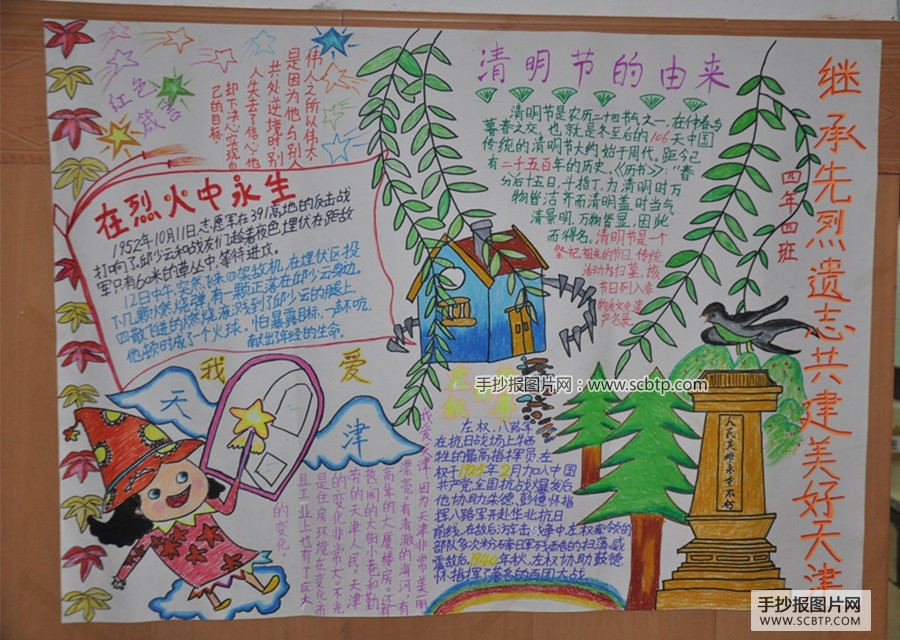 继承先烈遗志共建美好天津
四年四班
红色
箴言
伟人之所以伟大
是因为他与别人
共处逆境时别
人失去了信心他
却下决心实现自
己的目标
清明节的由来
清明节是农历二十四节气之一，在仲春与
暮春之交，也就是冬至后的106天中国
传统的清明节大约始于周代，距今已
有二千五百年的历史，《历书》："春
分后十五日，斗指丁，为清明时万
物皆洁齐而清明盖时当气
清景明，万物皆显，因此
而得名。清明节是一个
祭祀祖先的节日，传统
活动为扫墓，该
节日列入非
物质文化遗
产名录
在烈火中永生
1952年10月11日，志愿军在391高地的反击战
打响了，邱少云和战友们趁着夜色埋伏在距敌
军只有60米的草丛中等待进攻。
12日中午，突然飞来四架敌机，在埋伏区投
下几颗燃烧弹，有一颗正落在邱少云身边，
四散飞迸的燃烧液溅到了邱少云的腿上，
他顿时成了一个火球，怕暴露目标，一声不吭，
献出了年轻的生命。
我 爱
天 津
我爱天津，因为天津非常美丽
漂亮，有清澈的海河，有
高高的大厦楼房，还有
热闹的大街小巷和勤
劳的天津人民。天津
的变化非常大，不光
是住房环境在变化，而
且工业上也有了巨大
的变化。
左权，八路军
在抗日战场上牺
牲的最高指挥员，左
权于1925年2月加入中国
共产党，全国抗战爆发后
他协助朱德、彭德怀指
挥八路军开赴华北抗日
前线，在敌后游击战争中左权率领的
部队多次粉碎日军残酷的扫荡，威
震敌后，1940年秋，左权协助彭德
怀指挥了著名的百团大战
人民英雄永垂不朽
手抄报图片网：www.scbtp.com
手抄报图片网
WWW.SCBTP.COM